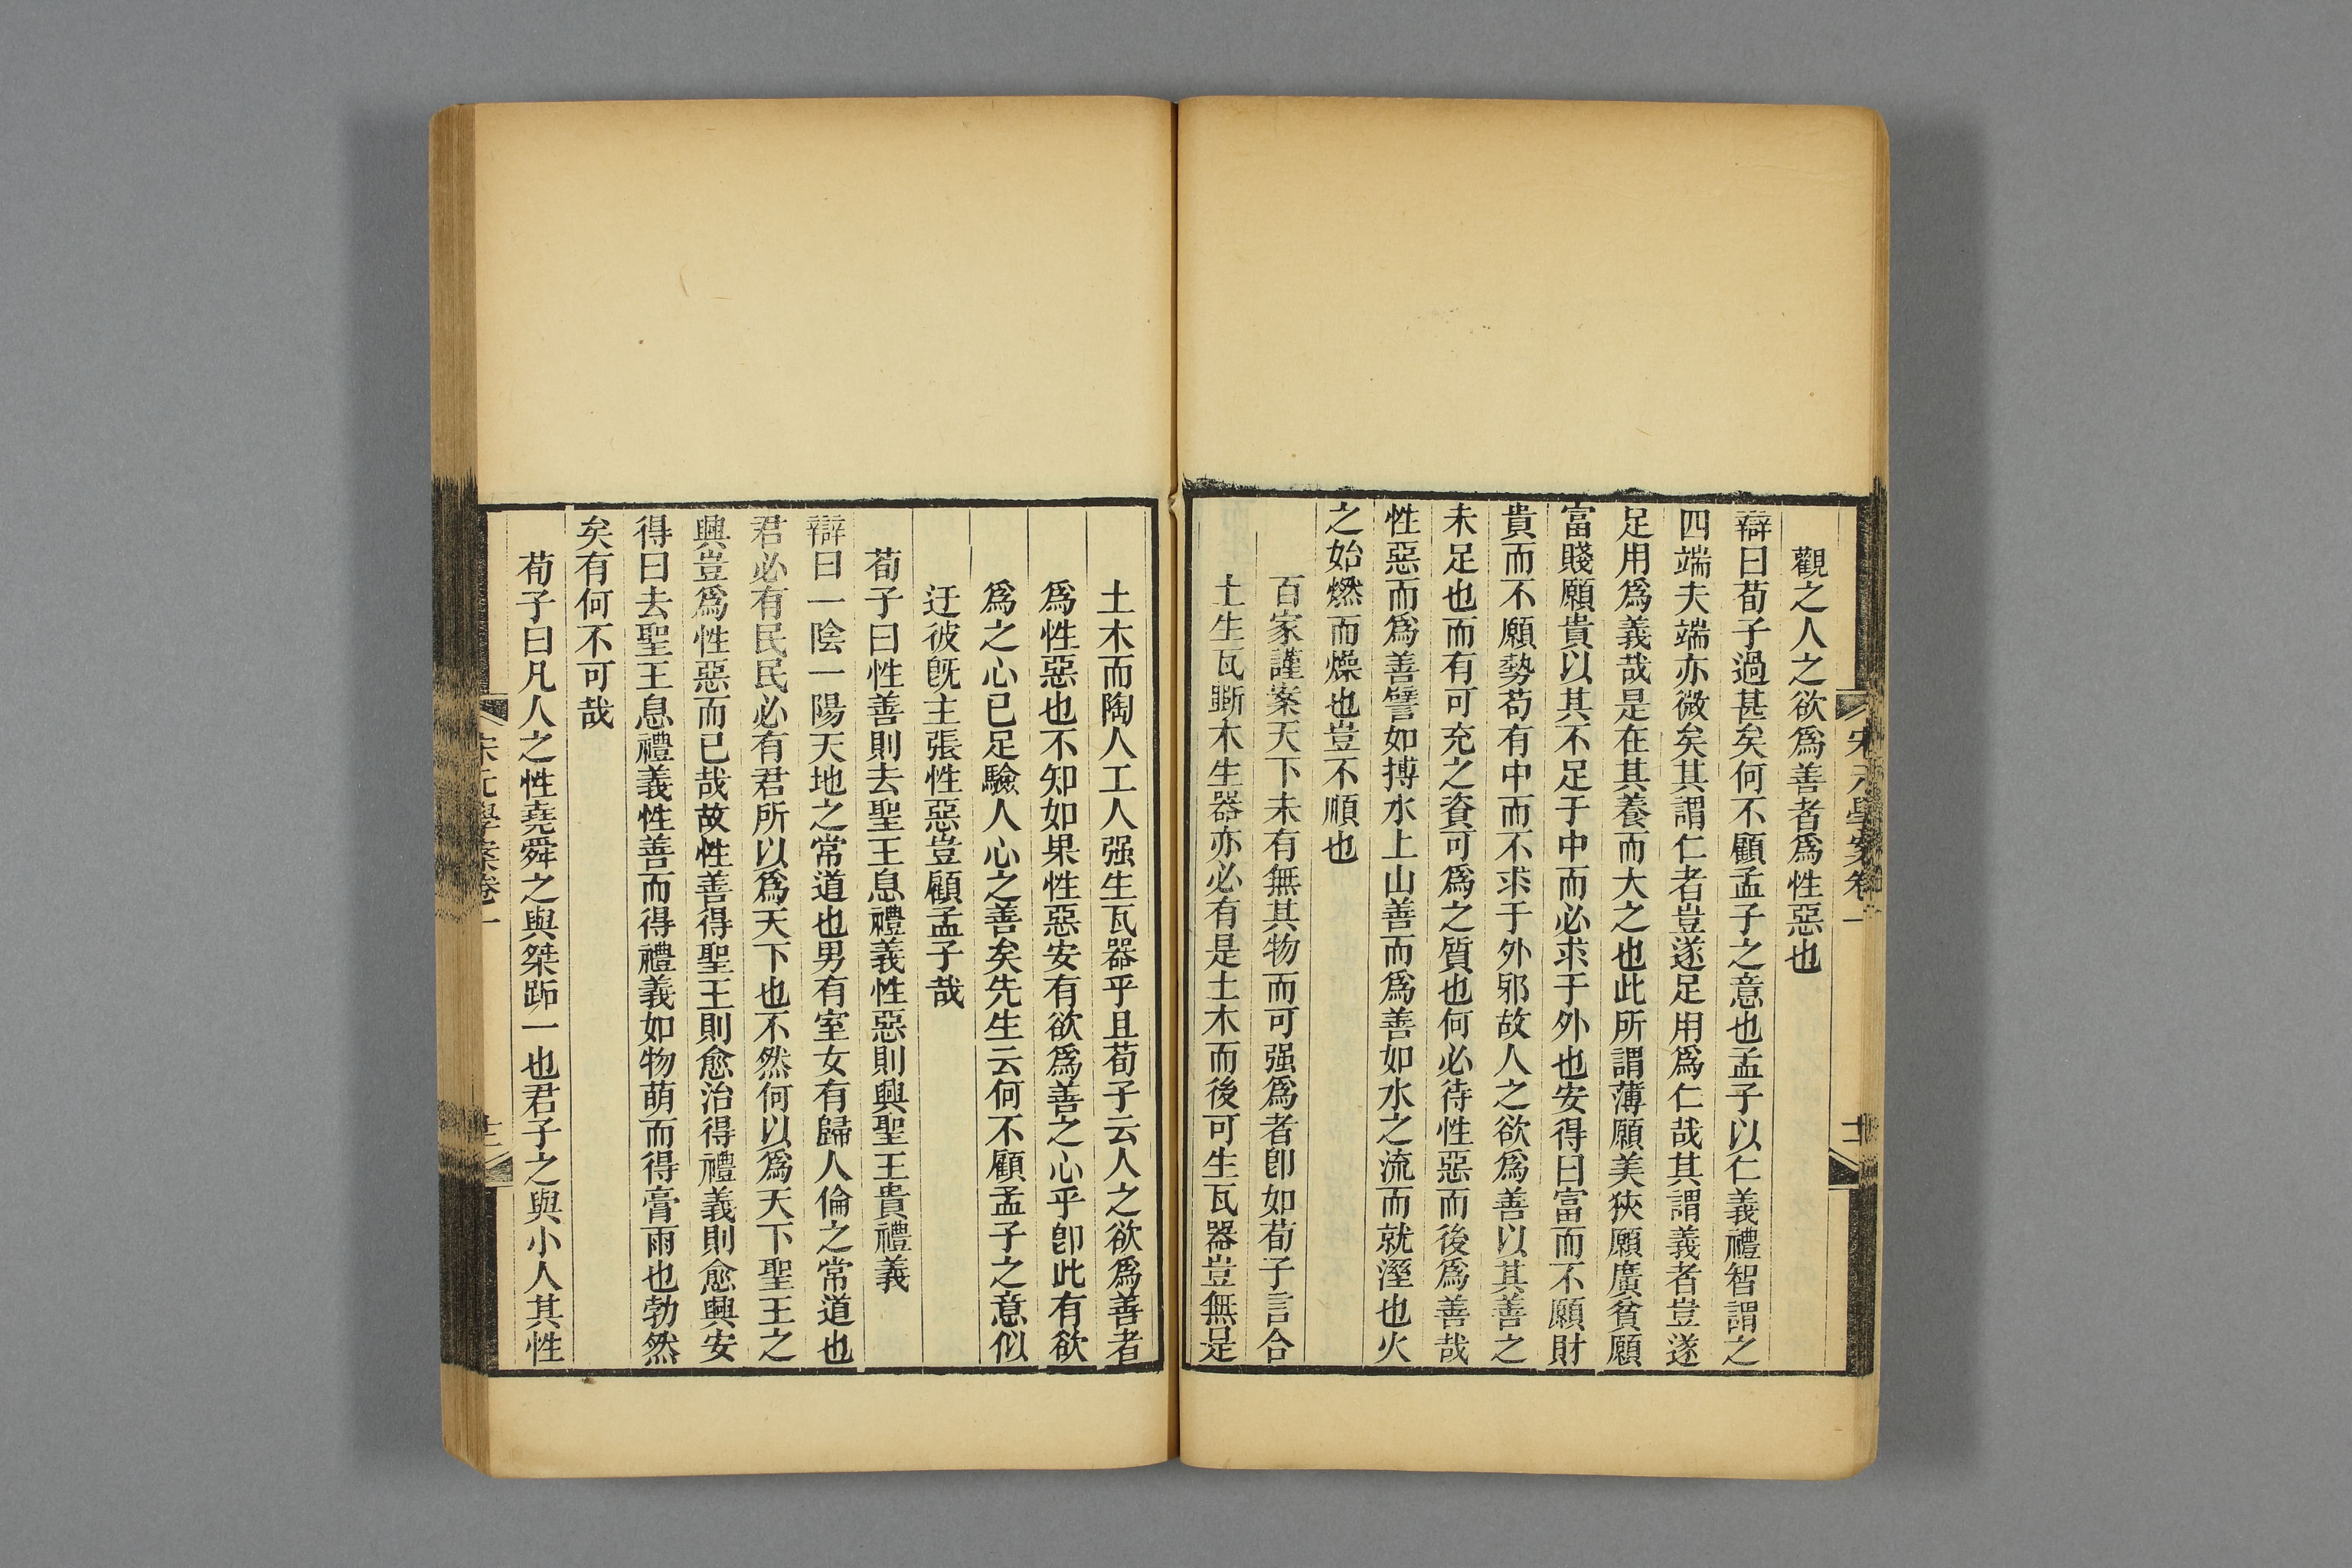 觀之人之欲爲善者爲性惡也
辯曰荀子過甚矣何不顧孟子之意也孟子以仁義禮智謂之
四端夫端亦微矣其謂仁者豈遂足用爲仁哉其謂義者豈遂
足用爲義哉是在其養而大之也此所謂薄願美狹願廣貧願
富賤願貴以其不足于中而必求于外也安得曰富而不願財
貴而不願勢苟有中而不求于外邪故人之欲爲善以其善之
未足也而有可充之資可爲之質也何必待性惡而後爲善哉
性惡而爲善譬如搏水上山善而爲善如水之流而就溼也火
之始燃而燥也豈不順也
百家謹案天下未有無其物而可强爲者卽如荀子言合
土生瓦斲木生器亦必有是土木而後可生瓦器豈無是
宋元學案卷一
土木而陶人工人强生瓦器乎且荀子云人之欲爲善者
爲性惡也不知如果性惡安有欲爲善之心乎卽此有欲
爲之心已足驗人心之善矣先生云何不顧孟子之意似
迂彼旣主張性惡豈顧孟子哉
荀子曰性善則去聖王息禮義性惡則興聖王貴禮義
辯曰一陰一陽天地之常道也男有室女有歸人倫之常道也
君必有民民必有君所以爲天下也不然何以爲天下聖王之
興豈爲性惡而已哉故性善得聖王則愈治得禮義則愈興安
得曰去聖王息禮義性善而得禮義如物萌而得膏雨也勃然
矣有何不可哉
荀子曰凡人之性堯舜之與桀跖一也君子之與小人其性
宋元學案卷一